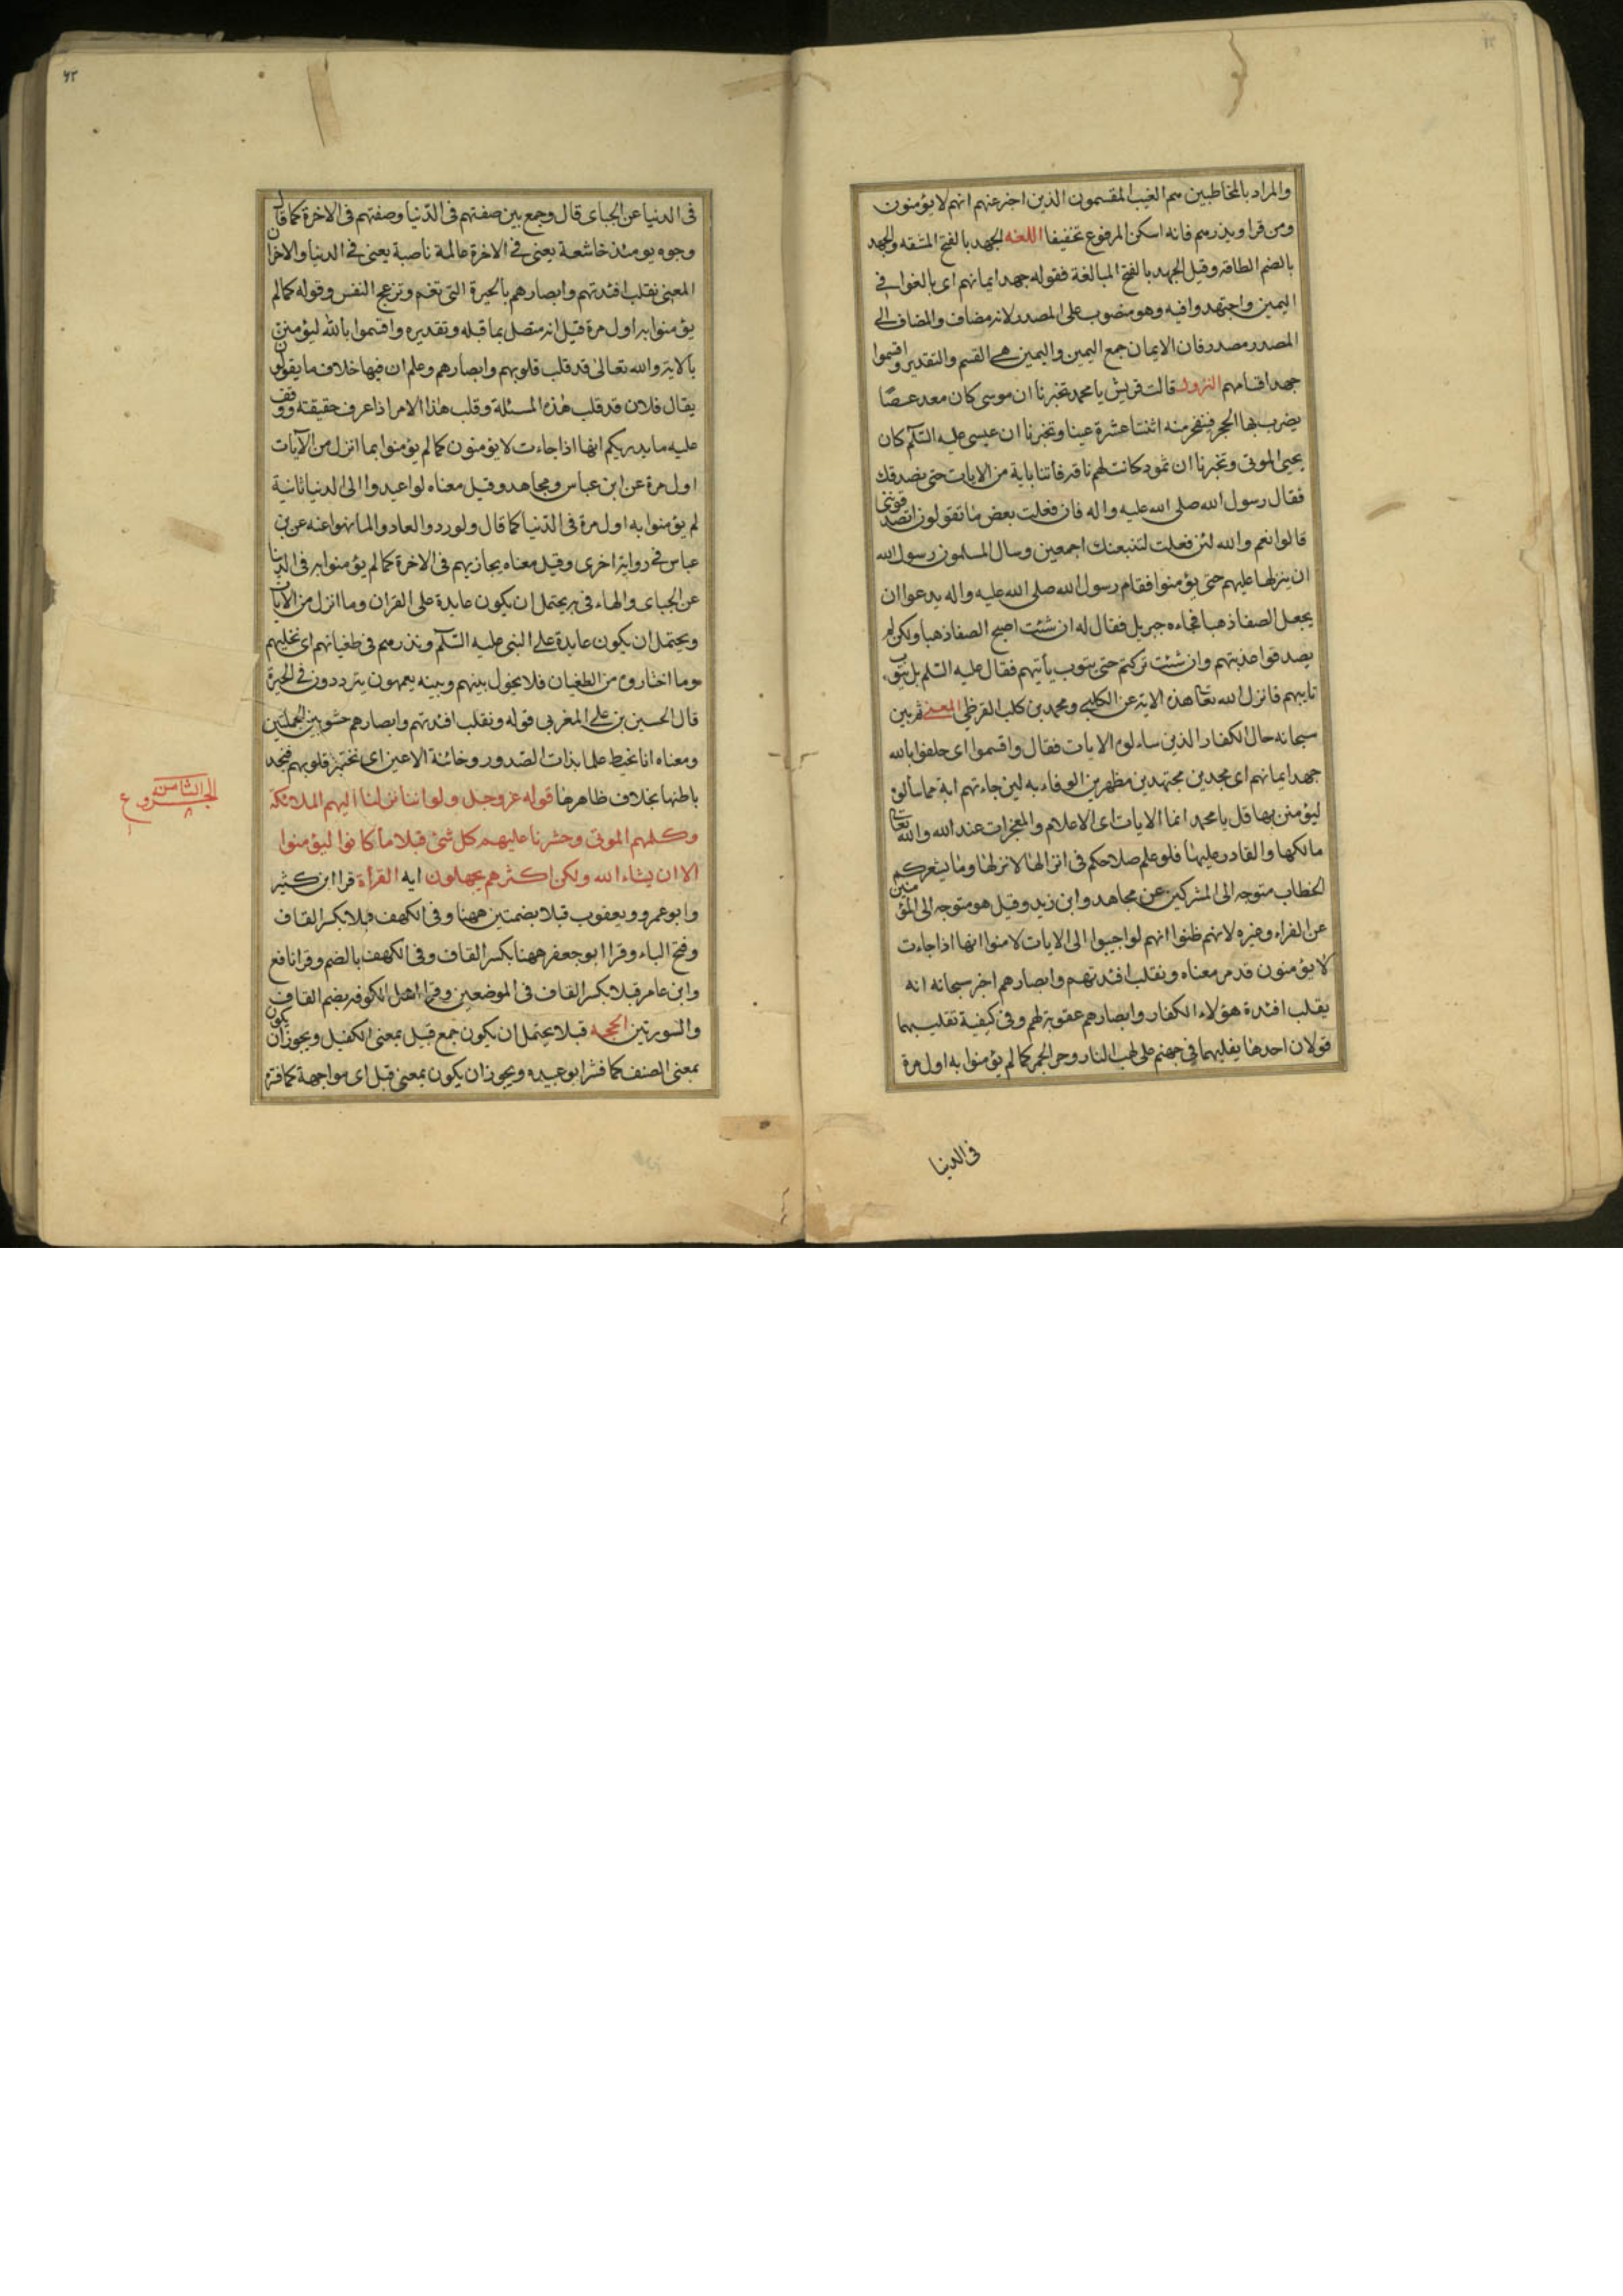 والمراد بالمخاطبين هم الغيب المقسمون الذين اخبر عنهم انهم لا يؤمنون
ومن قرا ويذرهم فانه اسكن المرفوع تخفيفا اللغه الجهد بالفتح المشقه والجهد
بالضم الطاقة وقيل الجهد بالفتح المبالغة فقوله جهد ايمانهم اى بالغوا فى
اليمين واجتهدوا فيه وهو منصوب على المصدر لانه مضاف والمضاف الى
المصدر مصدر فان الايمان جمع اليمين واليمين هى القسم والتقدير واقسموا
جهد اقسامهم النزول قالت قريش يا محمد تخبرنا ان موسى كان معه عصًا
يضرب بها الحجر فينفجر منه اثنتا عشرة عينا وتخبرنا ان عيسى عليه السّلم كان
يحيى الموتى وتخبرنا ان ثمود كانت لهم ناقه فأتنا باية من الايات حتى نصدقك
فقال رسول الله صلى الله عليه واله فان فعلت بعض ما تقولون اتصدقوننى
قالوا نعم والله لئن فعلت لنتبعنك اجمعين وسال المسلمون رسول الله
ان ينزلها عليهم حتى يؤمنوا فقام رسول الله صلى الله عليه واله يدعوا ان
يجعل الصفا ذهبا فجاءه جبريل فقال له ان شئت اصبح الصفا ذهبا ولكن لم
يصدقوا عذبتهم وان شئت تركتهم حتى يتوب تايبهم فقال عليه السّلم بل يتوب
تايبهم فانزل الله تعا هذه الاية عن الكلبى ومحمد بن كلب القرظى المعنى ثم بين
سبحانه حال الكفار الذين ساءلوه الايات فقال واقسموا اى حلفوا بالله
جهد ايمانهم اى مجدين مجتهدين مظهرين الوفاء به لين جاءتهم اية مما سألوه
ليؤمنن بها قل يا محمد انما الايات اى الاعلام والمعجزات عند الله والله تعا
مالكها والقادر عليها فلو علم صلاحكم فى انزالها لانزلها وما يشعركم
الخطاب متوجه الى المشركين عن مجاهد وابن زيد وقيل هو متوجه الى المؤمنين
عن الفراء وغيره لانهم ظنوا انهم لو اجيبوا الى الايات لامنوا انها اذا جاءت
لا يؤمنون قد مر معناه ونقلب افئدتهم وابصارهم اخبر سبحانه انه
يقلب افئدة هؤلاء الكفار وابصارهم عقوبة لهم وفى كيفية تقليبهما
قولان احدها يقلبهما فى جهنم على لهب النار وحر الجمر كما لم يؤمنوا به اول مرة
فى الدنيا
٦٢
فى الدنيا عن الجباى قال وجمع بين صفتهم فى الدّنيا وصفتهم فى الاخرة كما قال
وجوه يومئذ خاشعة يعنى فى الاخرة عاملة ناصبة يعنى فى الدنيا والاخر ان
المعنى نقلب افئدتهم وابصارهم بالحيرة التى تغم وتزعج النفس وقوله كما لم
يؤمنوا به اول مرة قيل انه متصل بما قبله وتقديره واقسموا بالله ليؤمنن
بالاية والله تعالى قد قلب قلوبهم وابصارهم وعلم ان فيها خلاف ما يقولون
يقال فلان قد قلب هذه المسئلة وقلب هذا الامر اذا عرف حقيقته ووقف
عليه ما يدريكم انها اذا جاءت لا يؤمنون كما لم يؤمنوا بما انزل من الآيات
اول مرة عن ابن عباس ومجاهد وقيل معناه لو اعيدوا الى الدنيا ثانية
لم يؤمنوا به اول مرة فى الدّنيا كما قال ولو ردوا لعادوا لما نهوا عنه عن بن
عباس فى رواية اخرى وقيل معناه يجازيهم فى الاخرة كما لم يؤمنوا به فى الدنيا
عن الجباى والهاء فى به يحتمل ان يكون عايدة على القران وما انزل من الايات
ويحتمل ان يكون عايدة على النبى عليه السّلم ونذرهم فى طغيانهم اى نخليهم
وما اختاروه من الطغيان فلا يحول بينهم وبينه يعمهون يترددون فى الحيرة
قال الحسين بن على المغربى قوله ونقلب افئدتهم وابصارهم حشو بين الجملتين
ومعناه انا نحيط علما بذات الصّدور وخائنة الاعين اى نختبر قلوبهم فنجد
باطنها بخلاف ظاهرها قوله عز وجل ولو اننا نزلنا اليهم الملائكة
وكلمهم الموتى وحشرنا عليهم كل شئ قبلا ما كانوا ليؤمنوا
الا ان يشاء الله ولكن اكثرهم يجهلون ايه القرأة قرا ابن كثير
وابو عمرو ويعقوب قبلا بضمتين ههنا وفى الكهف قبلا بكسر القاف
وفتح الباء وقرا ابو جعفر ههنا بكسر القاف وفى الكهف بالضم وقرا نافع
وابن عامر قبلا بكسر القاف فى الموضعين وقرا اهل الكوفه بضم القاف
والسورتين الحجه قبلا يحتمل ان يكون جمع قبيل بمعنى الكفيل ويجوز ان يكون
بمعنى الصنف كما فسّر ابو عبيده ويجوز ان يكون بمعنى قبل اى مواجهة كما فسّره
الجزو الثامن
٨